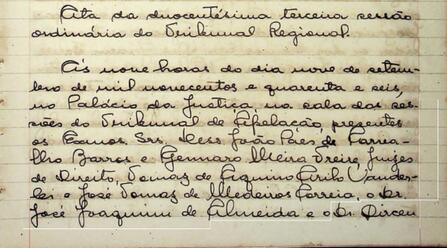 Ata da duocentésima terceira sessão
ordinária do Tribunal Regional.
Ás nove horas do dia nove de setem-
bro de mil novecentos e quarenta e seis,
no Palácio da Justiça, na sala das ses-
sões do Tribunal de Apelação, presentes
os Exmos. Srs. Dess João Pães de Carva-
lho Barros e Gennaro Freire, Juizes
de Direito, Tomaz de Aquino Cirilo Wander-
lei e José Tomaz de Medeiros Correia, o Dr.
José Joaquim de Almeida e o Dr. Dirceu